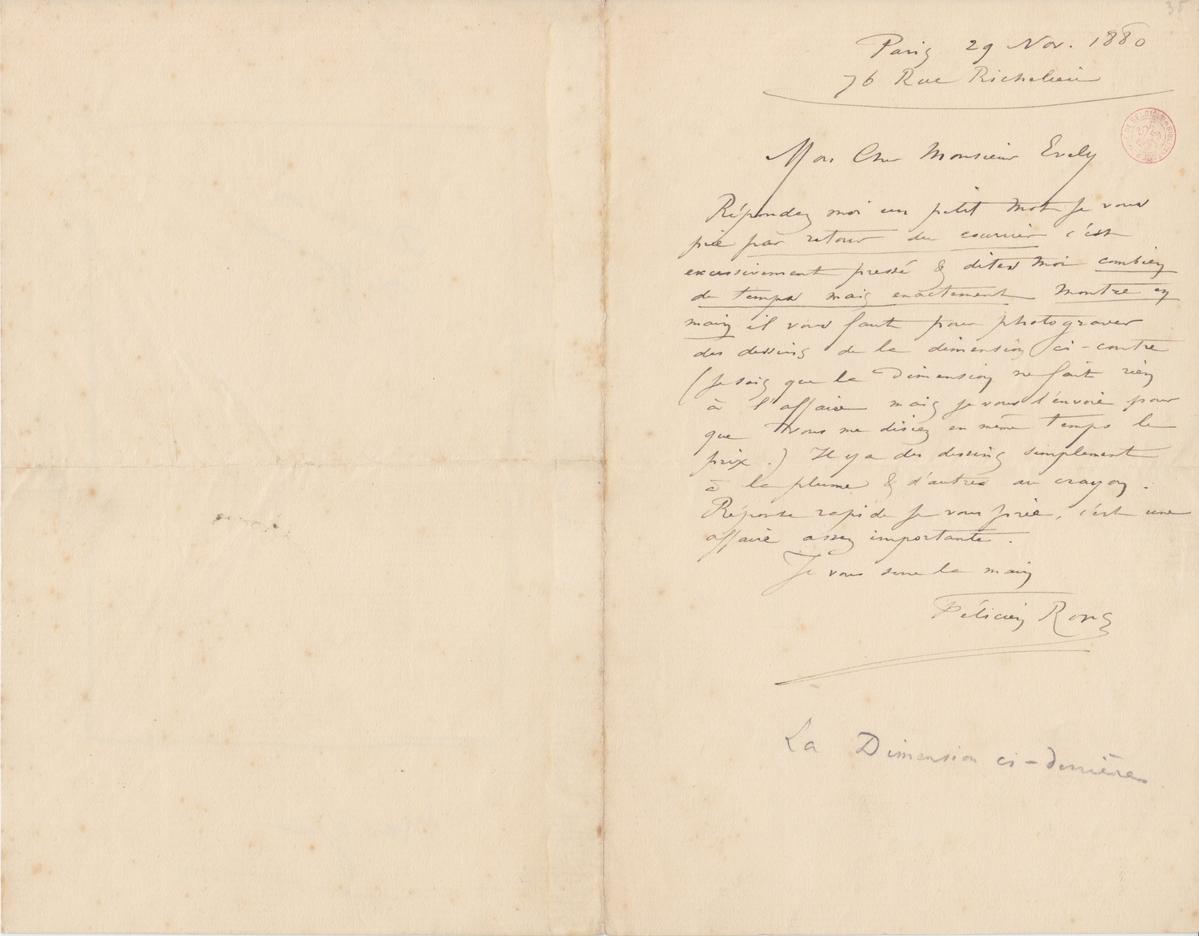 35
Paris 29 Nov. 1880
76 Rue Richelieu
Mon Cher Monsieur Evely
Répondez moi un petit mot je vous
prie par retour du courrier c'est
excessivement pressé & dites moi combien
de temps mais exactement montre en
main il vous faut pour photograver
des dessins de la dimension ci-contre
(je sais que la dimension ne fait rien
à l'affaire mais je vous l'envoie pour
que vous me disiez en même temps le
prix.) Il y a des dessins simplement
à la plume & d'autres au crayon.
Réponse rapide je vous prie, c'est une
affaire assez importante.
Je vous serre la main
Félicien Rops
La Dimension ci-derrière